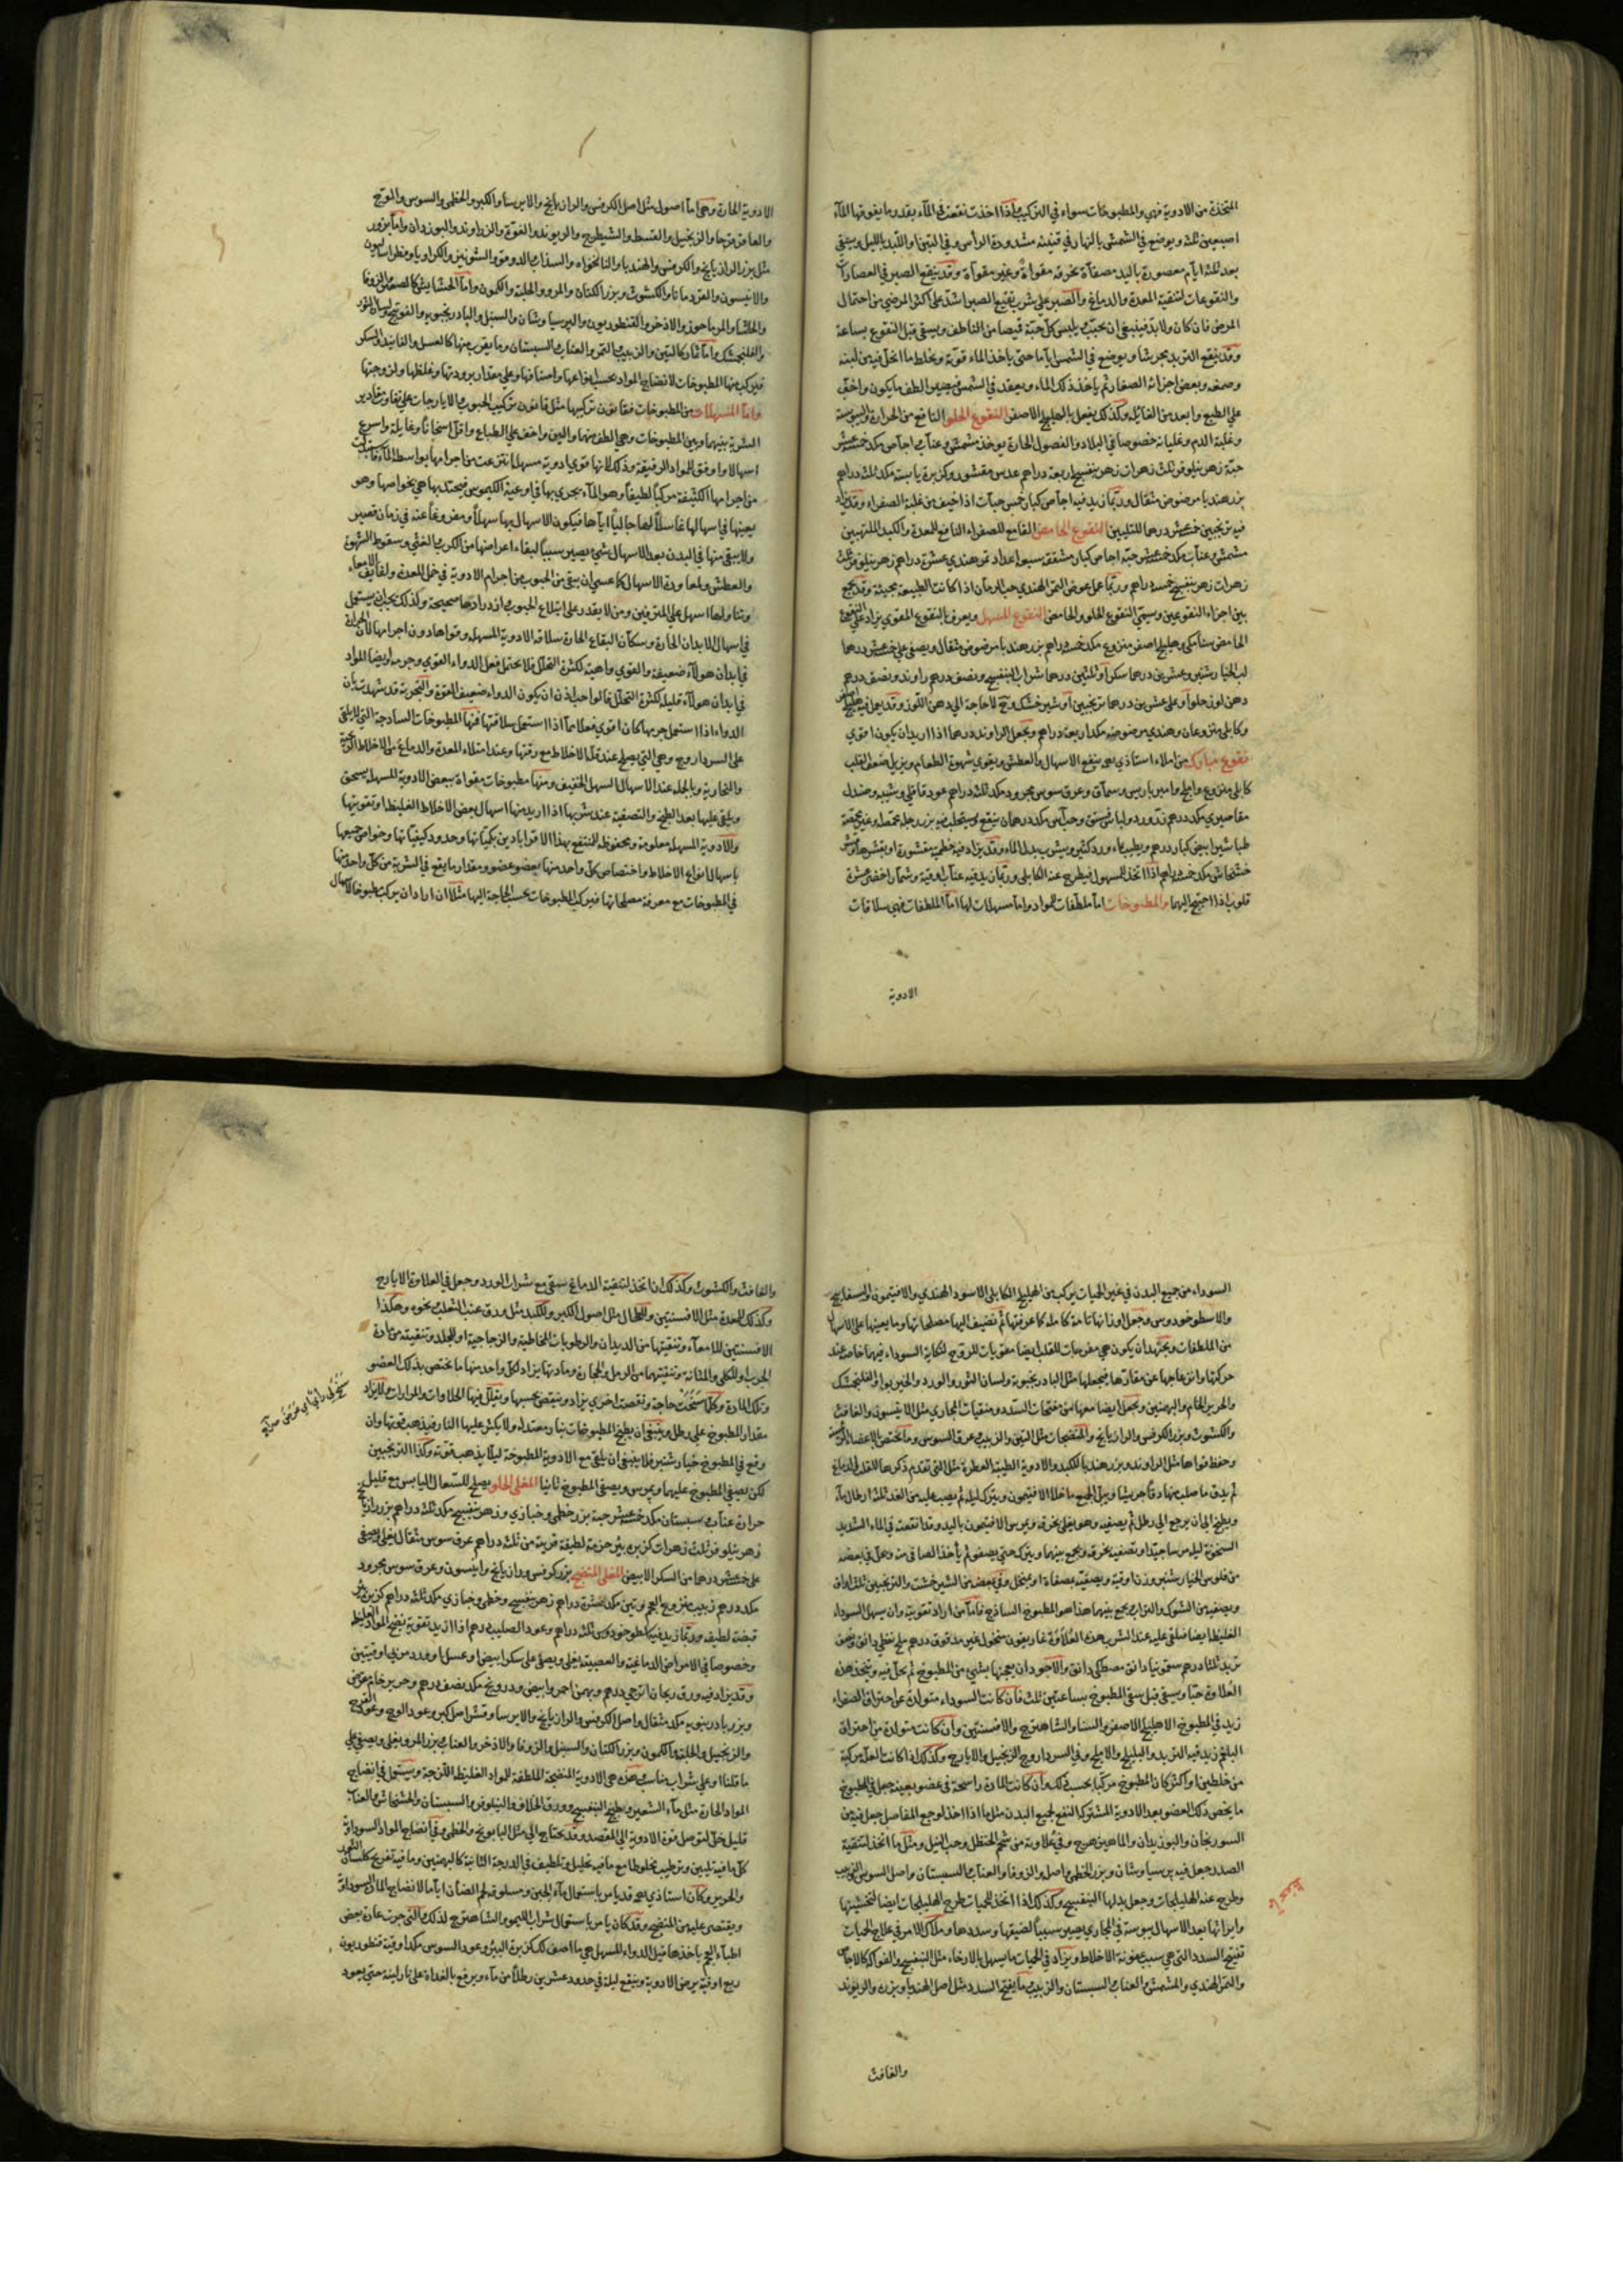 المتخذة من الادوية فهي والمطبوخات سواء في التركيب واذا اخذت نقعت في المآء بقدر ما يغوقها المآء
اصبعين ثلثه ويوضع في الشمس بالنهار في قنينة مشدودة الرأس وفي التبن او اللبد بالليل ويسقي
بعد ثلثه ايآم معصورة باليد مصفآة بخرقه مقواة وغير مقوآة وقد ينقع الصبر في العصارات
والنقوعات لتنقية المعدة والدماغ والصبر علي شرب نقيع الصبر اشد علي اكثر المرضي من احتمال
المرض فان كان ولا بد فينبغي ان يحبب ويلبس كل حبة قميصا من الناطف ويسقي قبل النقوع بساعة
وقد ينقع التربد مجرشا ويوضع في الشمس اياما حتي ياخذ الماء قوته ويخلط ما انحل فيه من لبنه
وصمغه وبعض اجزائه الصغار ثم ياخذ ذلك الماء ويعقد في الشمس فيصير الطف ما يكون واخف
علي الطبع وابعد من الغائله وكذلك يفعل بالهليلج الاصفر النقوع الحلو النافع من الحرارة واليبوسة
وغلبة الدم وغليانه خصوصا في البلاد والفصول الحارة يوخذ مشمش وعناب واجاص مكد خمسة عشر
حبة زهر نيلوفر ثلث زهرات زهر بنفسج اربعة دراهم عدس مقشور وكزبرة يابسة مكد ثلثه دراهم
بزر هندبا مرضوض مثقال وربما زيد فيه اجاص كبار خمس حبات اذا خيف من غلبة الصفراء وقد يزاد
فيه ترنجبين خمسة عشر درهما للتليين النقوع الحامض القامع للصفراء النافع للمعدة والكبد الملتهبين
مشمش وعناب مكد خمسة عشر حبة اجاص كبار مشققة سبعة اعداد تمر هندي عشرة دراهم زهر نيلوفر ثلث
زهرات زهر بنفسج خمسه دراهم وربما عمل عوض التمر الهندي حب الرمان اذا كانت الطبيعة مجيبة وقد يجمع
بين اجزاء النقوعين ويسمي النقوع الحلو والحامض النقوع المسهل ويعرف بالنقوع المقوي يزاد علي النقوع
الحامض سنا مكي وهليلج اصفر منزوع مكد خمسه دراهم بزر هندبا مرضوض مثقال ويصفي علي خمسة عشر درهما
لب الخيار شنبر وعشرين درهما سكر او ثلثين درهما شراب البنفسج ونصف درهم راوند ونصف درهم
دهن لوز حلو او علي عشرين درهما ترنجبين او شير خشك ولا حاجة الي دهن اللوز وقد يعمل فيه هليلج اصفر
وكابلي منزوعان وهندي مرضوضه مكد اربعة دراهم ويجعل الراوند درهما اذا اريد ان يكون اقوي
نقوع مبارك من املاء استاذي ينفع الاسهال والعطش ويقوي شهوة الطعام ويزيل ضعف القلب
كابلي منزوع واملج وامير باريس وسماق وعرق سوس مجرود مكد ثلثه دراهم عود قاقلي وشيبه وصندل
مقاصيري مكد درهم زرورد ولباب فستق وحب آس مكد درهمان ينقع ويستحلب فيه بزر رجله محمصا وغير محمصة
طباشير ابيض كبار درهم ويطيب بماء ورد كثير ويشرب بدل الماء وقد يزاد فيه خطمي مقشورة
خشخاش مكد خمسه دراهم اذا اتخذ للمسهول فيطرح عنه الكابلي وربما زيد فيه عناب اوقية
قلوب اذا احتيج اليهما والمطبوخات اما ملطفات للمواد واما مسهلات لها اما الملطفات فهي سلاقات
الادوية
الادوية الحارة وهي اما اصول مثل اصل الكرفس والرازيانج والايرسا والكبر والخطمي والسوس والوج
والعاقرقرحا والزنجبيل والقسط والشيطرج والريوند والفوة والزراوند والبوزيدان واما بزور
مثل بزر الرازيانج والكرفس والهندبا والنانخواه والسذاب والدوقو والشونيز والكراويا وفطراساليون
والانيسون والقردمانا والكشوث وبزر الكتان والمرو والحلبة والكمون واما الحشايش كالصعتر والزوفا
والحاشا والمرماحوز والاذخر والقنطوريون والبرسياوشان والسنبل والبادرنجبويه والفوتنج ولسان الثور
والفلنجمشك واما ثمار كالتين والزبيب والتمر والعناب والسبستان وما يقرب منها كالعسل والفانيذ والسكر
فيركب منها المطبوخات لانضاج المواد بحسب انواعها واصنافها وعلي مقدار برودتها وغلظها ولزوجتها
واما المسهلات من المطبوخات فقانون تركيبها مثل قانون تركيب الحبوب والايارجات علي تفاوت مقادير
الشربة بينهما وبين المطبوخات وهي الطف منهما والين واخف علي الطباع واقل اسخانا وغايلة واسرع
اسهالا واوفق للمواد الرقيقة وذلك لانها قوي ادوية مسهلة انتزعت من اجرامها بواسطة المآء فاستبدلت
من اجرامها الكثيفة مركبا لطيفا وهو المآء يجري بها في اوعية الكيموس فيحتد بها هي بخواصها وهو
يعينها في اسهالها غاسلا لها جاليا اياها فيكون الاسهال بها سهلا ومفروغا عنه في زمان قصير
ولا يبقي منها في البدن بعد الاسهال شئ يصير سببا لبقاء اعراضها من الكرب والغثي وسقوط الشهوة
والعطش ولمعاودة الاسهال كما عسي ان يبقي من الحبوب من اجرام الادوية في خمل المعدة ولفايف الامعاء
وتناولها اسهل علي المترفين ومن لا يقدر علي ابتلاع الحبوب وازدرادها صحيحة ولذلك يجب ان يستعمل
في اسهال الابدان الحارة وسكان البقاع الحارة سلاقة الادوية المسهلة وقواها دون اجرامها لان الحرارة
في ابدان هولآء ضعيفة والقوي واهية لكثرة التحلل فلا يحتمل فعل الدواء القوي وجرمه وايضا المواد
في ابدان هولآء قليلة لكثرة التحلل فالواجب اذن ان يكون الدواء ضعيف القوة والتجربة قد شهدت بان
الدواء اذا استعمل جرمها كان اقوي فعلا مما اذا استعمل سلاقتها فمنها المطبوخات الساذجة التي لا يلقي
علي السرد اروج وهي التي يصلح عند قلة الاخلاط مع رقتها وعند امتلاء المعدة والدماغ من الاخلاط
والبخارية وبالجملة عند الاسهال السهل الخفيف ومنها مطبوخات مقواة ببعض الادوية المسهلة يسحق
ويلقي عليها بعد الطبخ والتصفية عند شربها اذا اريد منها اسهال بعض الاخلاط الغليظة او تقويتها
والادوية المسهلة معلومة ومحفوظة للمنتفع بهذا الاقراباذين بكمياتها وحدود كيفياتها وخواص جميعها
باسهال انواع الاخلاط واختصاص كل واحد منها بعضو عضو ومقدار ما يقع في الشربة من كل واحد منها
في المطبوخات مع معرفة مصلحاتها فيركب المطبوخات بحسب الحاجة اليها مثلا ان اراد ان يركب مطبوخا لاسهال
السوداء من جميع البدن في غير الحميات يركب من الهليلج الكابلي الاسود الهندي والافتيمون والبسفايج
والاسطوخودوس وجعل اوزانها تامة كاملة كما عرفتها ثم تضيف اليها مصلحاتها وما يعينها علي الاسهال
من الملطفات ويجتهد ان يكون هي مفرحات للقلب ايضا مقويات للروح لنكاية السوداء فيهما خاصة عند
حركتها وانزعاجها عن مقارها فيجعلها مثل البادرنجبوية ولسان الثور والورد والخيربوا والفلنجمشك
والحرير الخام والبهمنين ويجعل ايضا معها من مفتحات السدد ومنقيات المجاري مثل الانيسون والغافث
والكشوث وبزر الكرفس والرازيانج والمنضجات مثل التين والزبيب وعرق السوس وما يختص بالاعضاء الرئيسة
وحفظ قواها مثل الراوند وبزر هندبا للكبد والادوية الطيبة العطرية مثل التي تقدم ذكرها للقلب والدماغ
ثم يدق ما صلب منها دقا جريشا ويبل الجميع ما خلا الافتيمون ويترك ليلة ثم يصب عليه من الغد ثلثة ارطال مآء
ويطبخ الي ان يرجع الي رطل ثم يصفيه وهو يغلي بخرقه ويمرس الافتيمون باليد وقد انقعته في الماء الشديد
السخونة ليلة مرسا جيدا وتصفيه بخرقه ويجمع بينهما ويترك حتي يصفو ثم يأخذ الصافي منه ويحل في بعضه
من فلوس الخيار شنبر وزن اوقية ويصفيه بمصفاة او بمنخل وفي بعض من الشير خشت والترنجبين ثلث اواق
ويصفيه من الشوك والتراب ويجمع بينهما هذا هو المطبوخ الساذج فاما من اراد تقويته وان يسهل السوداء
الغليظة ايضا فيلقي عليه عند الشرب هذه العلاوة غاريقون منخول غير مدقوق درهم ملح نفطي دانق ونصف
تربد ثلثا درهم سقمونيا دانق مصطكي دانق والاجود ان يعجنها بشئ من المطبوخ ثم يحل فيه ويتخذ هذه
العلاوة حبا ويسقي قبل سقي المطبوخ بساعتين ثلث فان كانت السوداء متولدة عن احتراق الصفراء
زيد في المطبوخ الاهليلج الاصفر والسنا والشاهترج والافسنتين وان كانت متولدة من احتراق
البلغم زيد فيه التربد والبليلج والاملج وفي السرداروج الزنجبيل والايارج وكذلك اذا كانت العلة مركبة
من خلطين او اكثر كان المطبوخ مركبا بحسب ذلك وان كانت المادة راسخة في عضو بعينه جعل في المطبوخ
ما يخص ذلك العضو بعد الادوية المشتركة النفع لجميع البدن مثل ما اذا اخذ لوجع المفاصل جعل فيه من
السورنجان والبوزيدان والماهيزهرج وفي علاوته من شحم الحنظل وحب النيل ومثل ما اتخذ لتنقية
الصدر جعل فيه برسياوشان وبزر الخطمي واصله والزوفا والعناب والسبستان واصل السوس والزبيب
وطرح عنه الهليلجات وجعل بدلها البنفسج وكذلك اذا اتخذ للحميات طرح الهليلجات ايضا لتخشينها
وايراثها بعد الاسهال يبوسة في المجاري يصير سببا لضيقها وسددها وملاك الامر في علاج الحميات
تفتيح السدد التي هي سبب عفونة الاخلاط ويزاد في الحميات ما يسهل بالارخاء مثل البنفسج والفواكه كالاجاص
والتمر الهندي والمشمش والعناب والسبستان والزبيب وما يفتح السدد مثل اصل الهندبا وبزره والريوند
والغافث
والغافث والكشوث وكذلك ان اتخذ لتنقية الدماغ سقي مع شراب الورد وجعل في العلاوة الايارج
وكذلك للمعدة مثل الافسنتين وللطحال مثل اصول الكبر وللكبد مثل ورق عنب الثعلب ونحوه وهكذا
الافسنتين للامعآء وتنقيتها من الديدان والرطوبات المخاطية والزجاجية او للجلد وتنقيته من مادة
الجرب او للكلي والمثانة وتنقيتهما من الرمل والحجارة ومادتها يزاد لكل واحد منها ما يختص بذلك العضو
وتلك المادة وكلما سنحت حاجة ونقصت اخري يزاد وينقص بحسبها ويقلل فيها الحلاوات والمرارات ولا يزاد
مقدار المطبوخ علي رطل وينبغي ان يطبخ المطبوخات بنار معتدلة ولا يكثر عليها النار فيذهب قوتها وان
وقع في المطبوخ خيار شنبر فلا ينبغي ان يلقي مع الادوية المطبوخة ليلا يذهب قوته وكذا الترنجبين
لكن يصفي المطبوخ عليهما ويمرس ويصفي المطبوخ ثانيا المغلي الحلو يصلح للسعال اليابس مع قليل
حرارة عناب وسبستان مكد خمسة عشر حبة بزر خطمي وخبازي وزهر بنفسج مكد ثلثه دراهم بزر رازيانج
زهر نيلوفر ثلث زهرات كزبره بئر حزمة لطيفة قريبة من ثلثه دراهم عرق سوس مثقال يغلي ويصفي
علي خمسة عشر درهما من السكر الابيض المغلي المنضج بزر كرفس ورازيانج وانيسون وعرق سوس مجرود
مكد درهم زبيب منزوع العجم وتين مكد عشرة دراهم زهر بنفسج وخطمي وخبازي مكد ثلثه دراهم كزبرة بئر
قبضة لطيفه وربما زيد فيه اسطوخودوس ثلثه دراهم وعود الصليب درهم اذا اريد تقويته ينضج المواد الغليظة
وخصوصا في الامراض الدماغية والعصبية يغلي ويصفي علي سكر ابيض او عسل او ورد مربي اوقيتين
وقد يزاد فيه ورق ريحان اترجي درهم وبهمن احمر وابيض ودرونج مكد نصف درهم وحرير خام
وبزر بادرنبويه مكد مثقال واصل الكرفس والرازيانج والايرسا وقشر اصل كبر وعود الوج وعود القرح
والزنجبيل والحلبة والكمون وبزر الكتان والسنبل والزوفا والاذخر والعناب وبزر المرو يغلي ويصفي علي
ما قلنا او علي شراب مناسب هذه هي الادوية المنضجة الملطفة للمواد الغليظة اللزجة ويستعمل في انضاج
المواد الحارة مثل مآء الشعير وطبيخ البنفسج وورق الخلاف والنيلوفر والسبستان والخشخاش والعناب
قليل خل لتوصل قوة الادوية الي المقصد وقد يحتاج الي مثل البابونج والخطمي وفي انضاج المواد السوداوية
كل ما فيه تليين وترطيب مخلوطا مع ما فيه تحليل وتلطيف في الدرجة الثانية كالبهمنين وما فيه تفريح كلسان الثور
والحرير وكان استاذي قد يامر باستعمال مآء الجبن ومسلوقة لحم الضان اياما لانضاج المادة السوداوية
ويقتصر عليه من المنضج وقد كان يامر باستعمال شراب الليمو والشاهترج لذلك والتي جرت عادة بعض
اطبآء العجم باخذها قبل الدواء المسهل هي ما اصف لك كزبرة البئر وعود السوس مكد اوقية قنطوريون
ربع اوقية يرض الادوية وينقع ليلة في حدود عشرين رطلا من مآء ويرفع بالغداة علي نار لينة حتي يعود